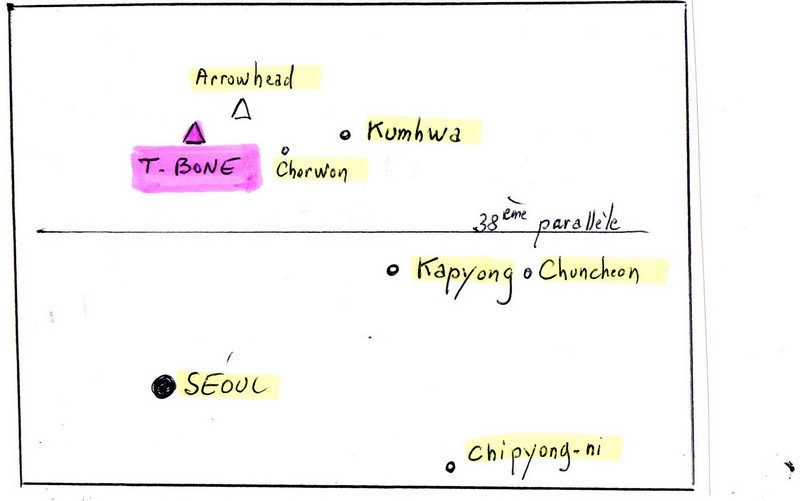 Arrowhead
Kumhwa
T-BONE
Chorwon
38ème parallèle
Kapyong
Chuncheon
SÉOUL
Chipyong-ni